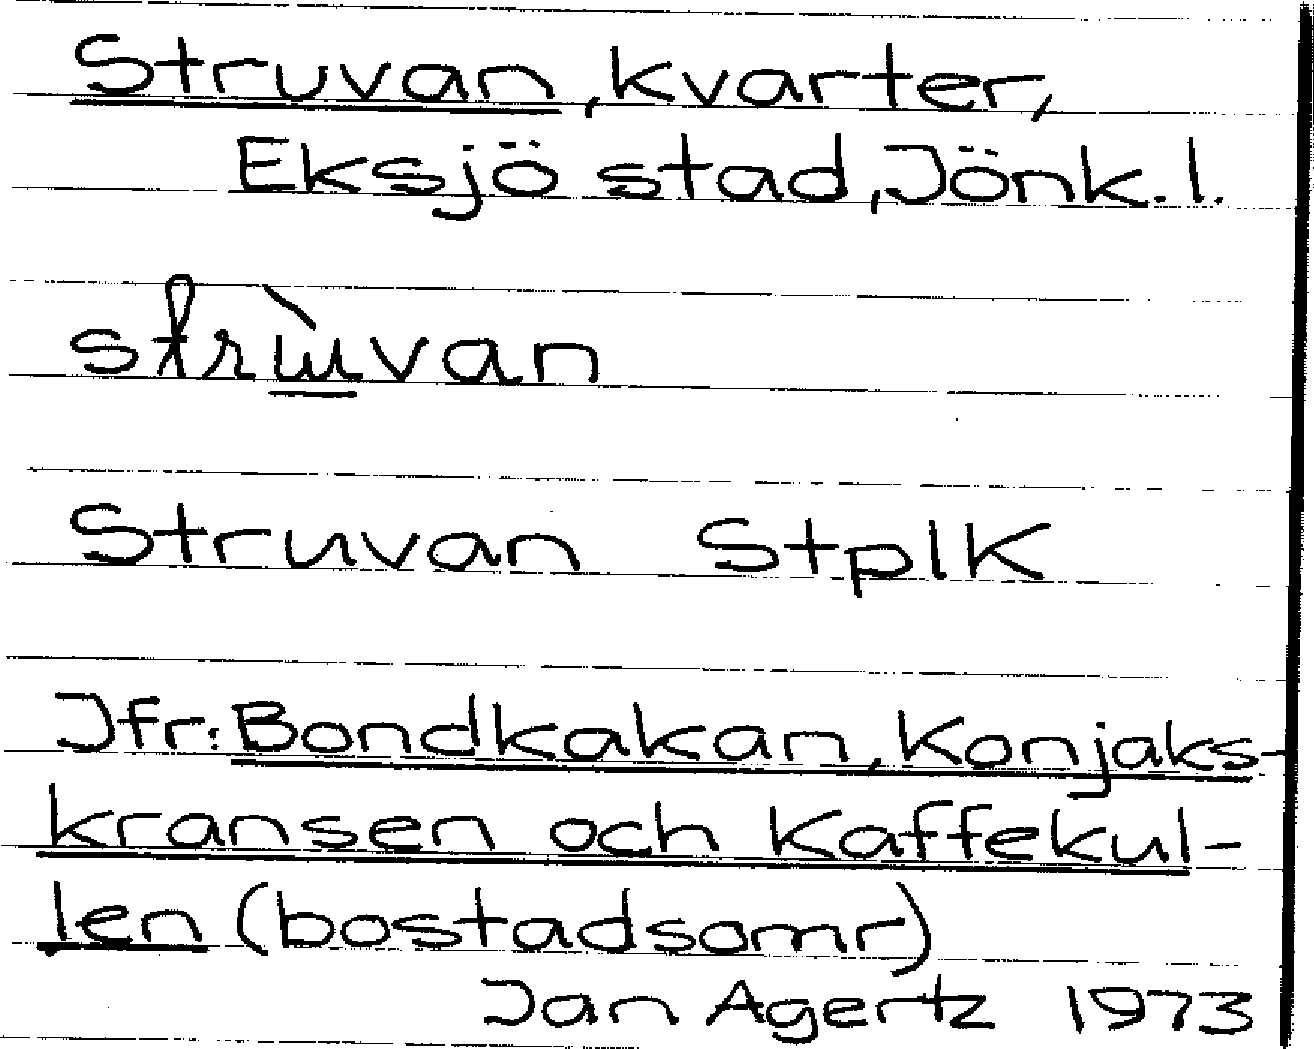 Struvan, kvarter,
Eksjö stad, Jönk. l.
strùvan
Struvan Stplk
Jfr: Bondkakan, Konjaks-
kransen och Kaffekul-
len (bostadsomr)
Jan Agertz 1973